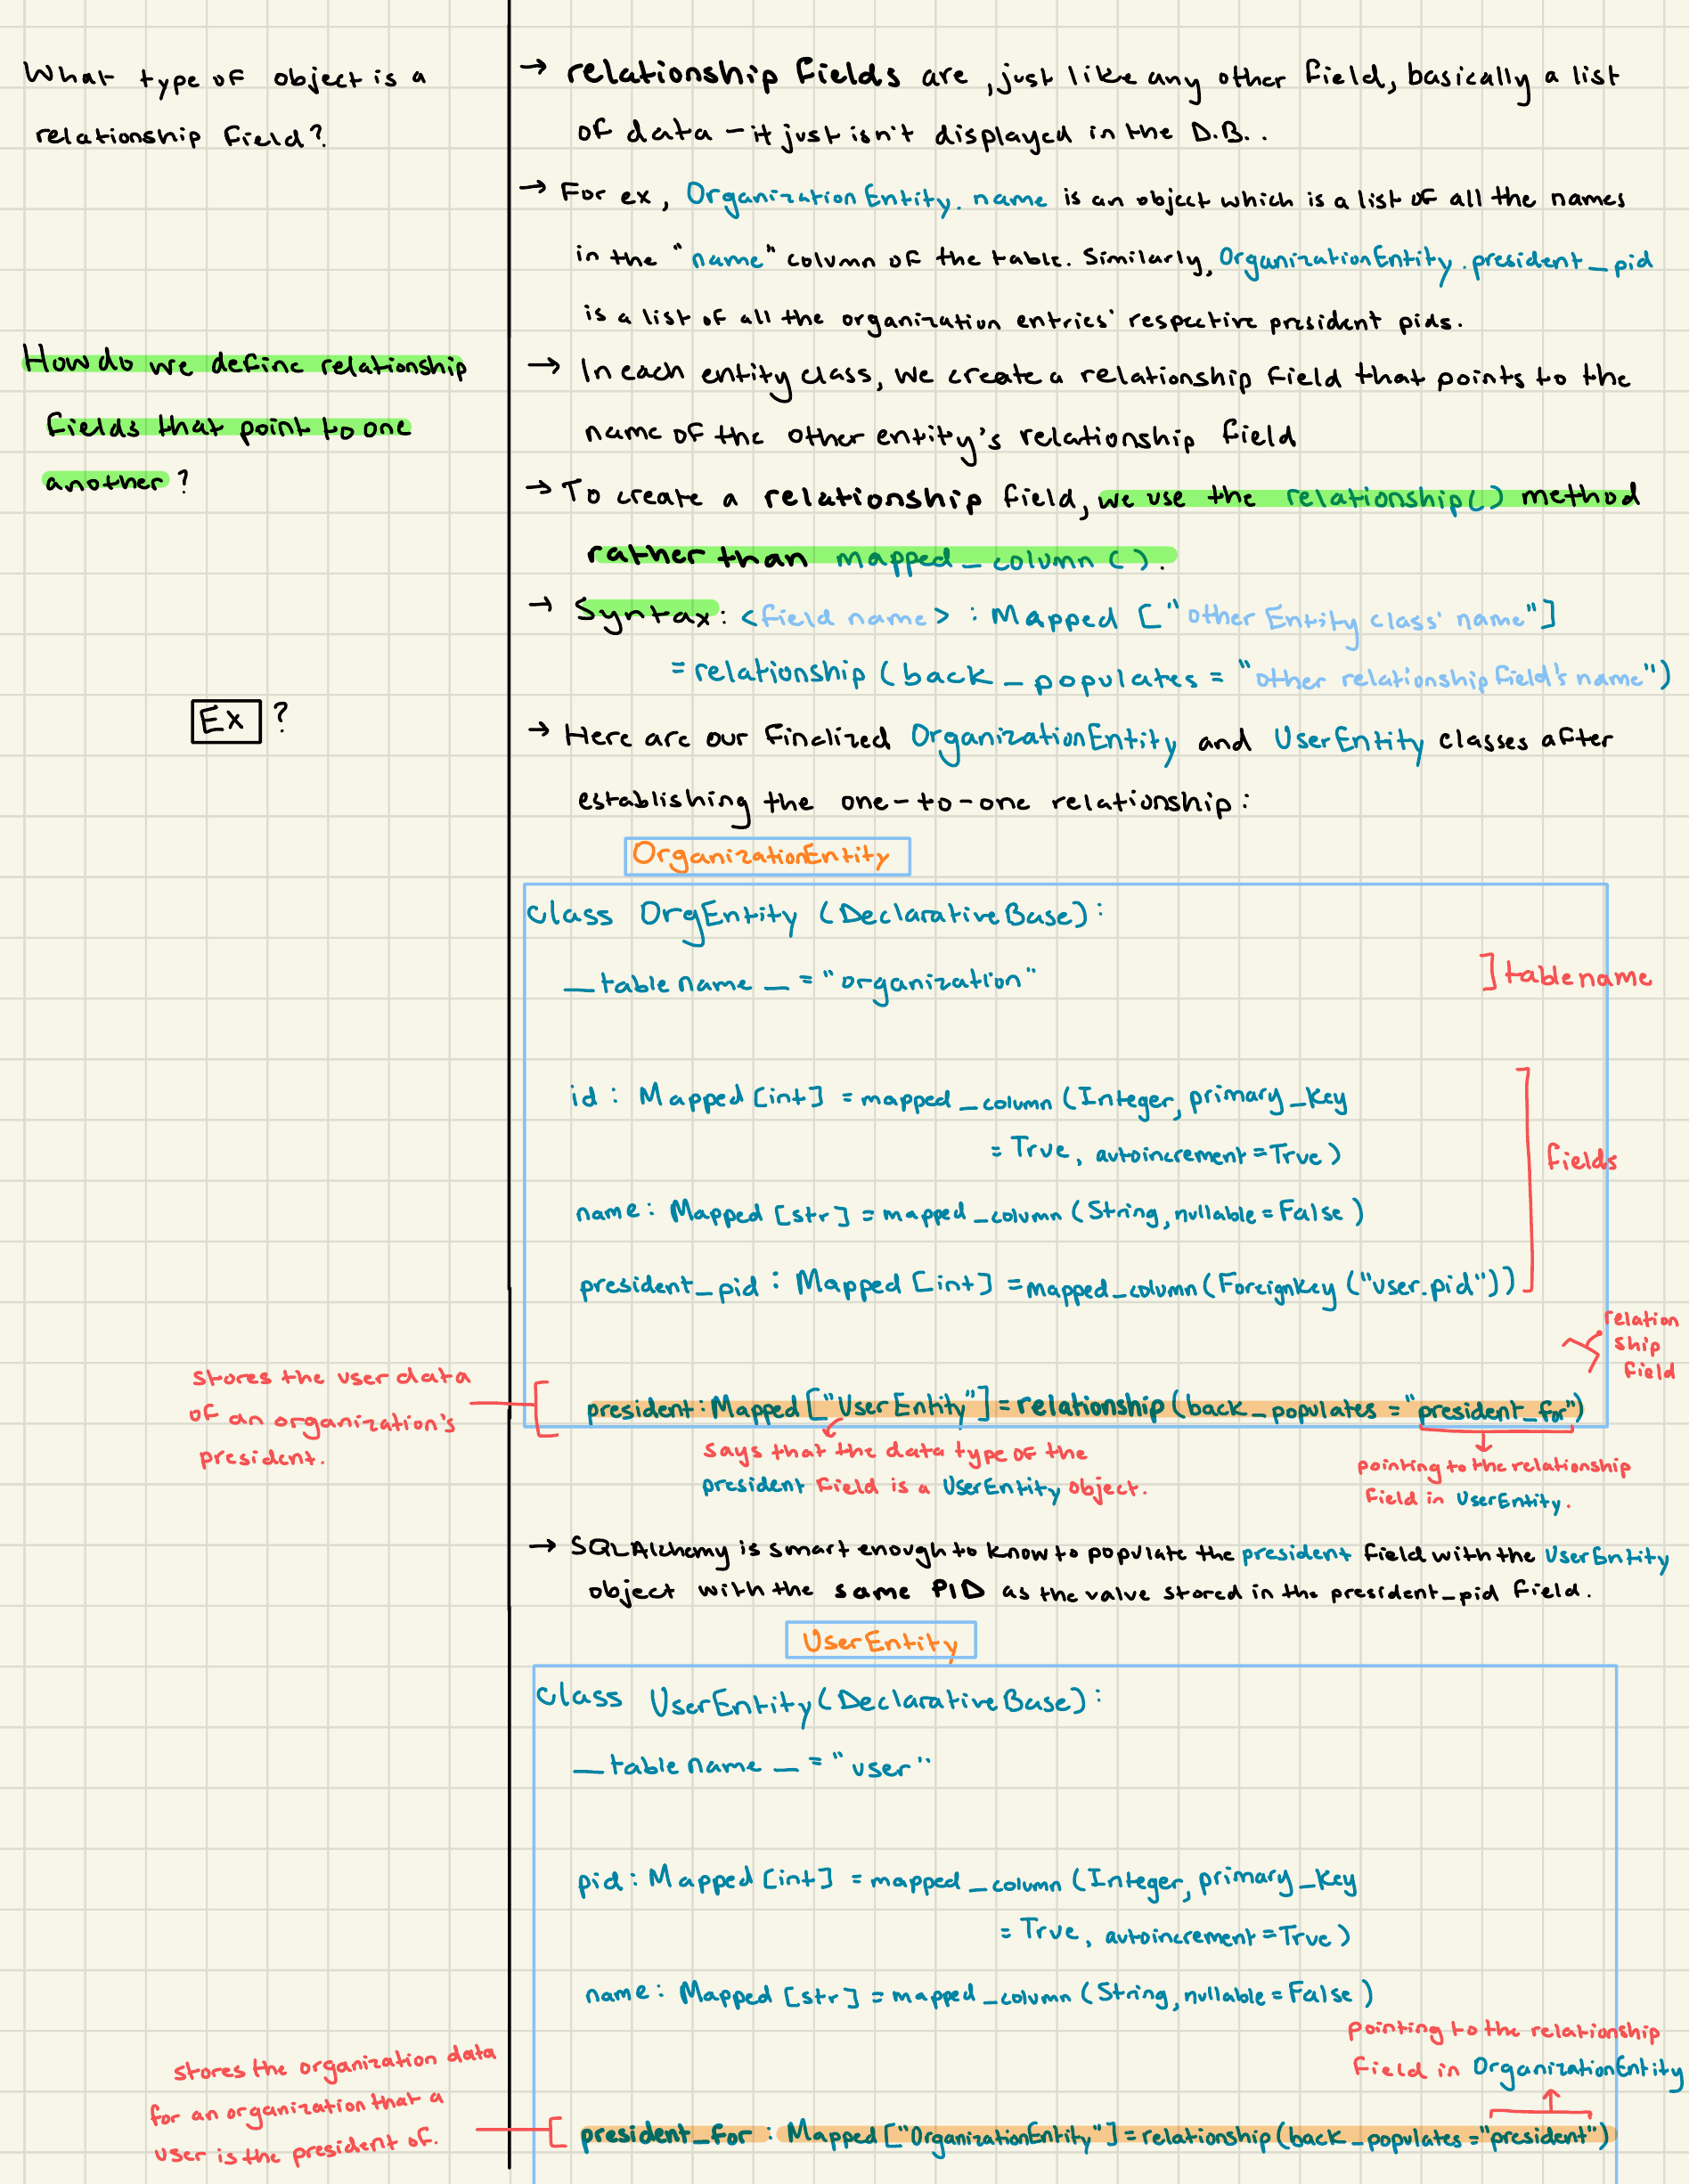 What type of object is a
relationship field?
→ relationship fields are, just like any other field, basically a list
of data - it just isn't displayed in the D.B..
→ For ex, OrganizationEntity.name is an object which is a list of all the names
in the "name" column of the table. Similarly, OrganizationEntity.president_pid
is a list of all the organization entries' respective president pids.
How do we define relationship
fields that point to one
another?
→ In each entity class, we create a relationship field that points to the
name of the other entity's relationship field
→ To create a relationship field, we use the relationship() method
rather than mapped_column().
→ Syntax: <field name> : Mapped ["other Entity class' name"]
= relationship (back_populates = "other relationship field's name")
Ex ?
→ Here are our finalized OrganizationEntity and UserEntity classes after
establishing the one-to-one relationship:
OrganizationEntity
class OrgEntity (DeclarativeBase):
_tablename_ = "organization"
] tablename
id: Mapped [int] = mapped_column (Integer, primary_key
= True, autoincrement = True)
fields
name: Mapped [str] = mapped_column (String, nullable = False)
president_pid: Mapped [int] = mapped_column (ForeignKey ("user.pid"))
relation
ship
field
stores the user data
of an organization's
president.
president: Mapped ["UserEntity"] = relationship (back_populates = "president_for")
says that the data type of the
president field is a UserEntity object.
pointing to the relationship
field in UserEntity.
→ SQLAlchemy is smart enough to know to populate the president field with the UserEntity
object with the same PID as the value stored in the president_pid field.
UserEntity
class UserEntity (DeclarativeBase):
_tablename_ = "user"
pid: Mapped [int] = mapped_column (Integer, primary_key
= True, autoincrement = True)
name: Mapped [str] = mapped_column (String, nullable = False)
pointing to the relationship
field in OrganizationEntity
stores the organization data
for an organization that a
user is the president of.
president_for : Mapped ["OrganizationEntity"] = relationship (back_populates = "president")